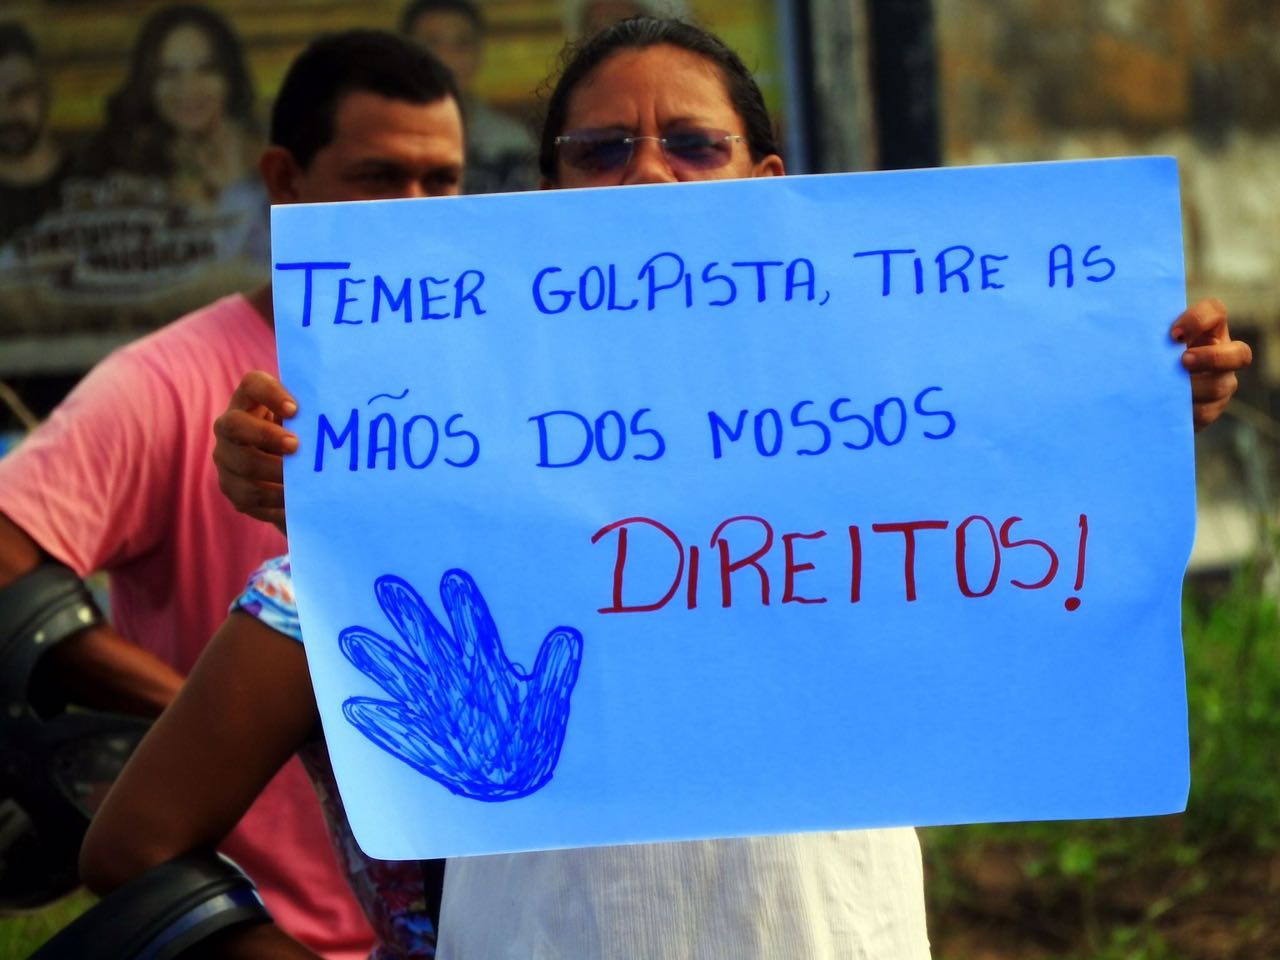 TEMER GOLPISTA, TIRE AS
MÃOS DOS NOSSOS
DIREITOS!
CIRCUITO
MUSICAL